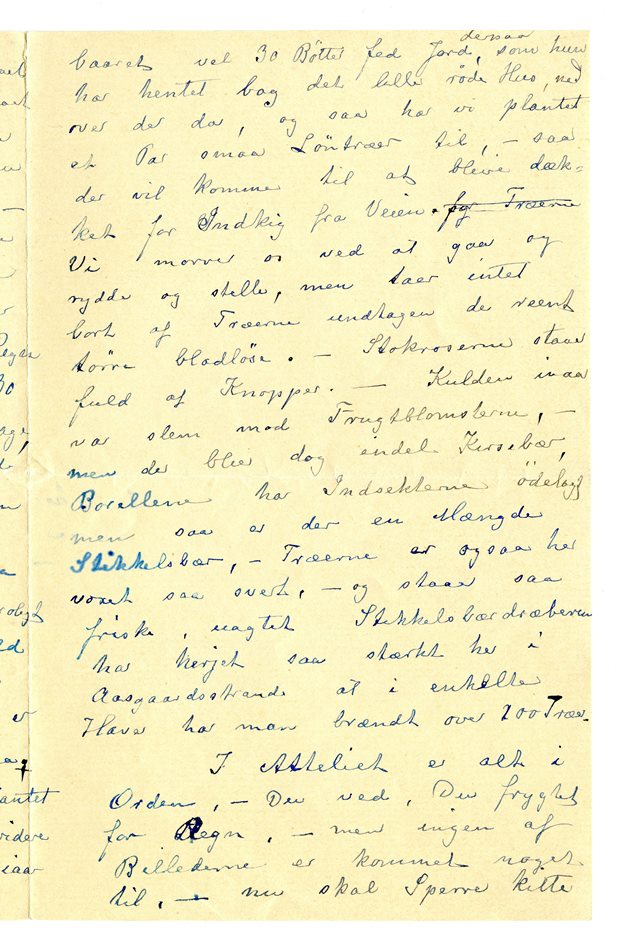 dersaa
baaret vel 30 Bötter fed Jord, som hun
har hentet bag det lille röde Hus, ned
over der da, og saa har vi plantet
et Par smaa Löntrær til, – saa
der vil komme til at bleive dæk-
ket for Indkig fra Veien. for Træerne
Vi morrer os ved at gaa og
rydde og stelle, men taer intet
bort af Træerne undtagen de reent
törre bladlöse. – Stokroserne staar
fuld af Knopper. – Kulden iaar
var slem mod Frugtblomsterne, –
men der blir dog endel Kirsebær,
Borellene har Indsekterne ödelagt
men saa er der en Mængde
Stikkelsbær, – Træerne er ogsaa her
voxet saa svert, – og staar saa
friske, uagtet Stikkelsbærdræberen
har herjet saa stærkt her i
Aasgaardsstrand at i enkelte
Haver har man brændt over 200 Trær.
I Atteliet er alt i
Orden, – Du ved, Du frygtet
for Regn, – men ingen af
Billederne er kommet noget
til, – nu skal Sperre kitte